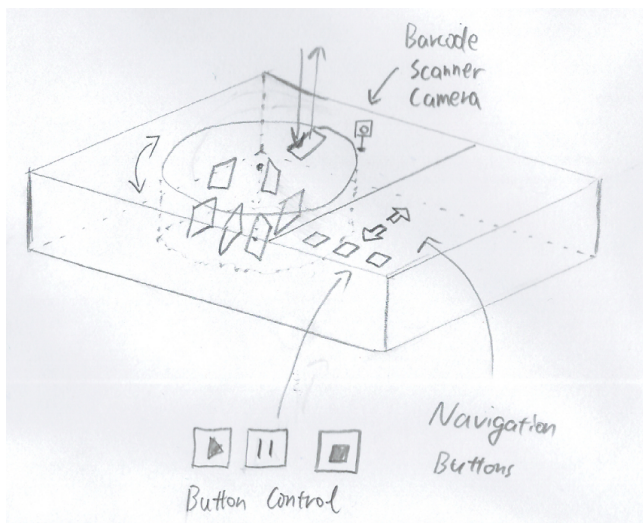 Barcode
Scanner
Camera
Navigation
Buttons
Button Control